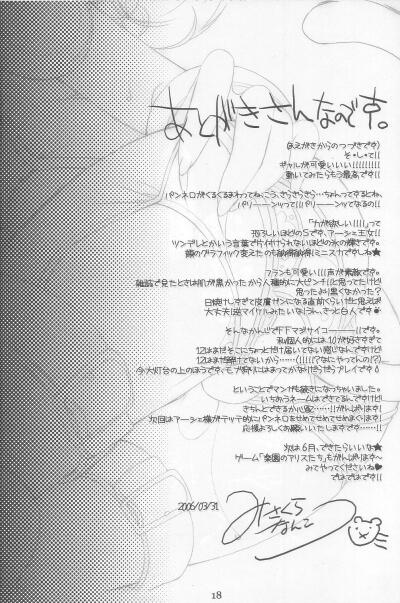 あとがきさんなのです。
(まえがきからのつづきです)
そ・し・て!!
ギャルが可愛いいい!!!!!!!!!
動いてみたらもう最高です!!
パンネロがくるくるまわってね、こう、きらきらきら…ちゃんって走るとね、
パリーーンッって!!パリーーンッてなるの!!
「力が欲しい!!!!」って
恐ろしいほどのSです、アーシェ王女!!
ツンデレとかいう言葉で片付けられないほどの氷の輝きです。
フランも可愛い!!!声が素敵です。
雑誌で見たときは肌が黒かったから人種的に大ピンチ!!と思ってたけど
思ったより黒くなかった?
日焼けしすぎて皮膚ガンになる直前くらいだと思えば
大丈夫!逆マイケルみたいな!うん、きっと白人です
そんなかんじでFFマジサイコーーーー!!です。
私個人的には10が好きすぎて
12はまだそこにちょっとだけ届いてない感じなんですけど
今大灯台の上のほうです、も
ということでマンガも続きになっちゃいました。
いちおうネームはできてるんですけど
きちんとできるか心配……!!がんばります!
次回はアーシェ様がテッテ的にパンネロをせめてせめてせめまくります!
応援よろしくお願いいたします……!!
次は6月、できたらいいな★
ゲーム「楽園のアリスたち」もがんばります〜
みてやってくださいね♥
ではでは!!
2006/03/31
みさくら
なんこつ
18